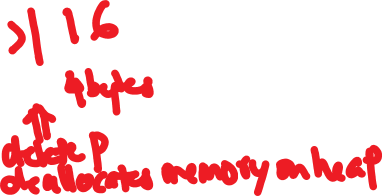 >| 16
4 bytes
delete P
deallocates memory on heap